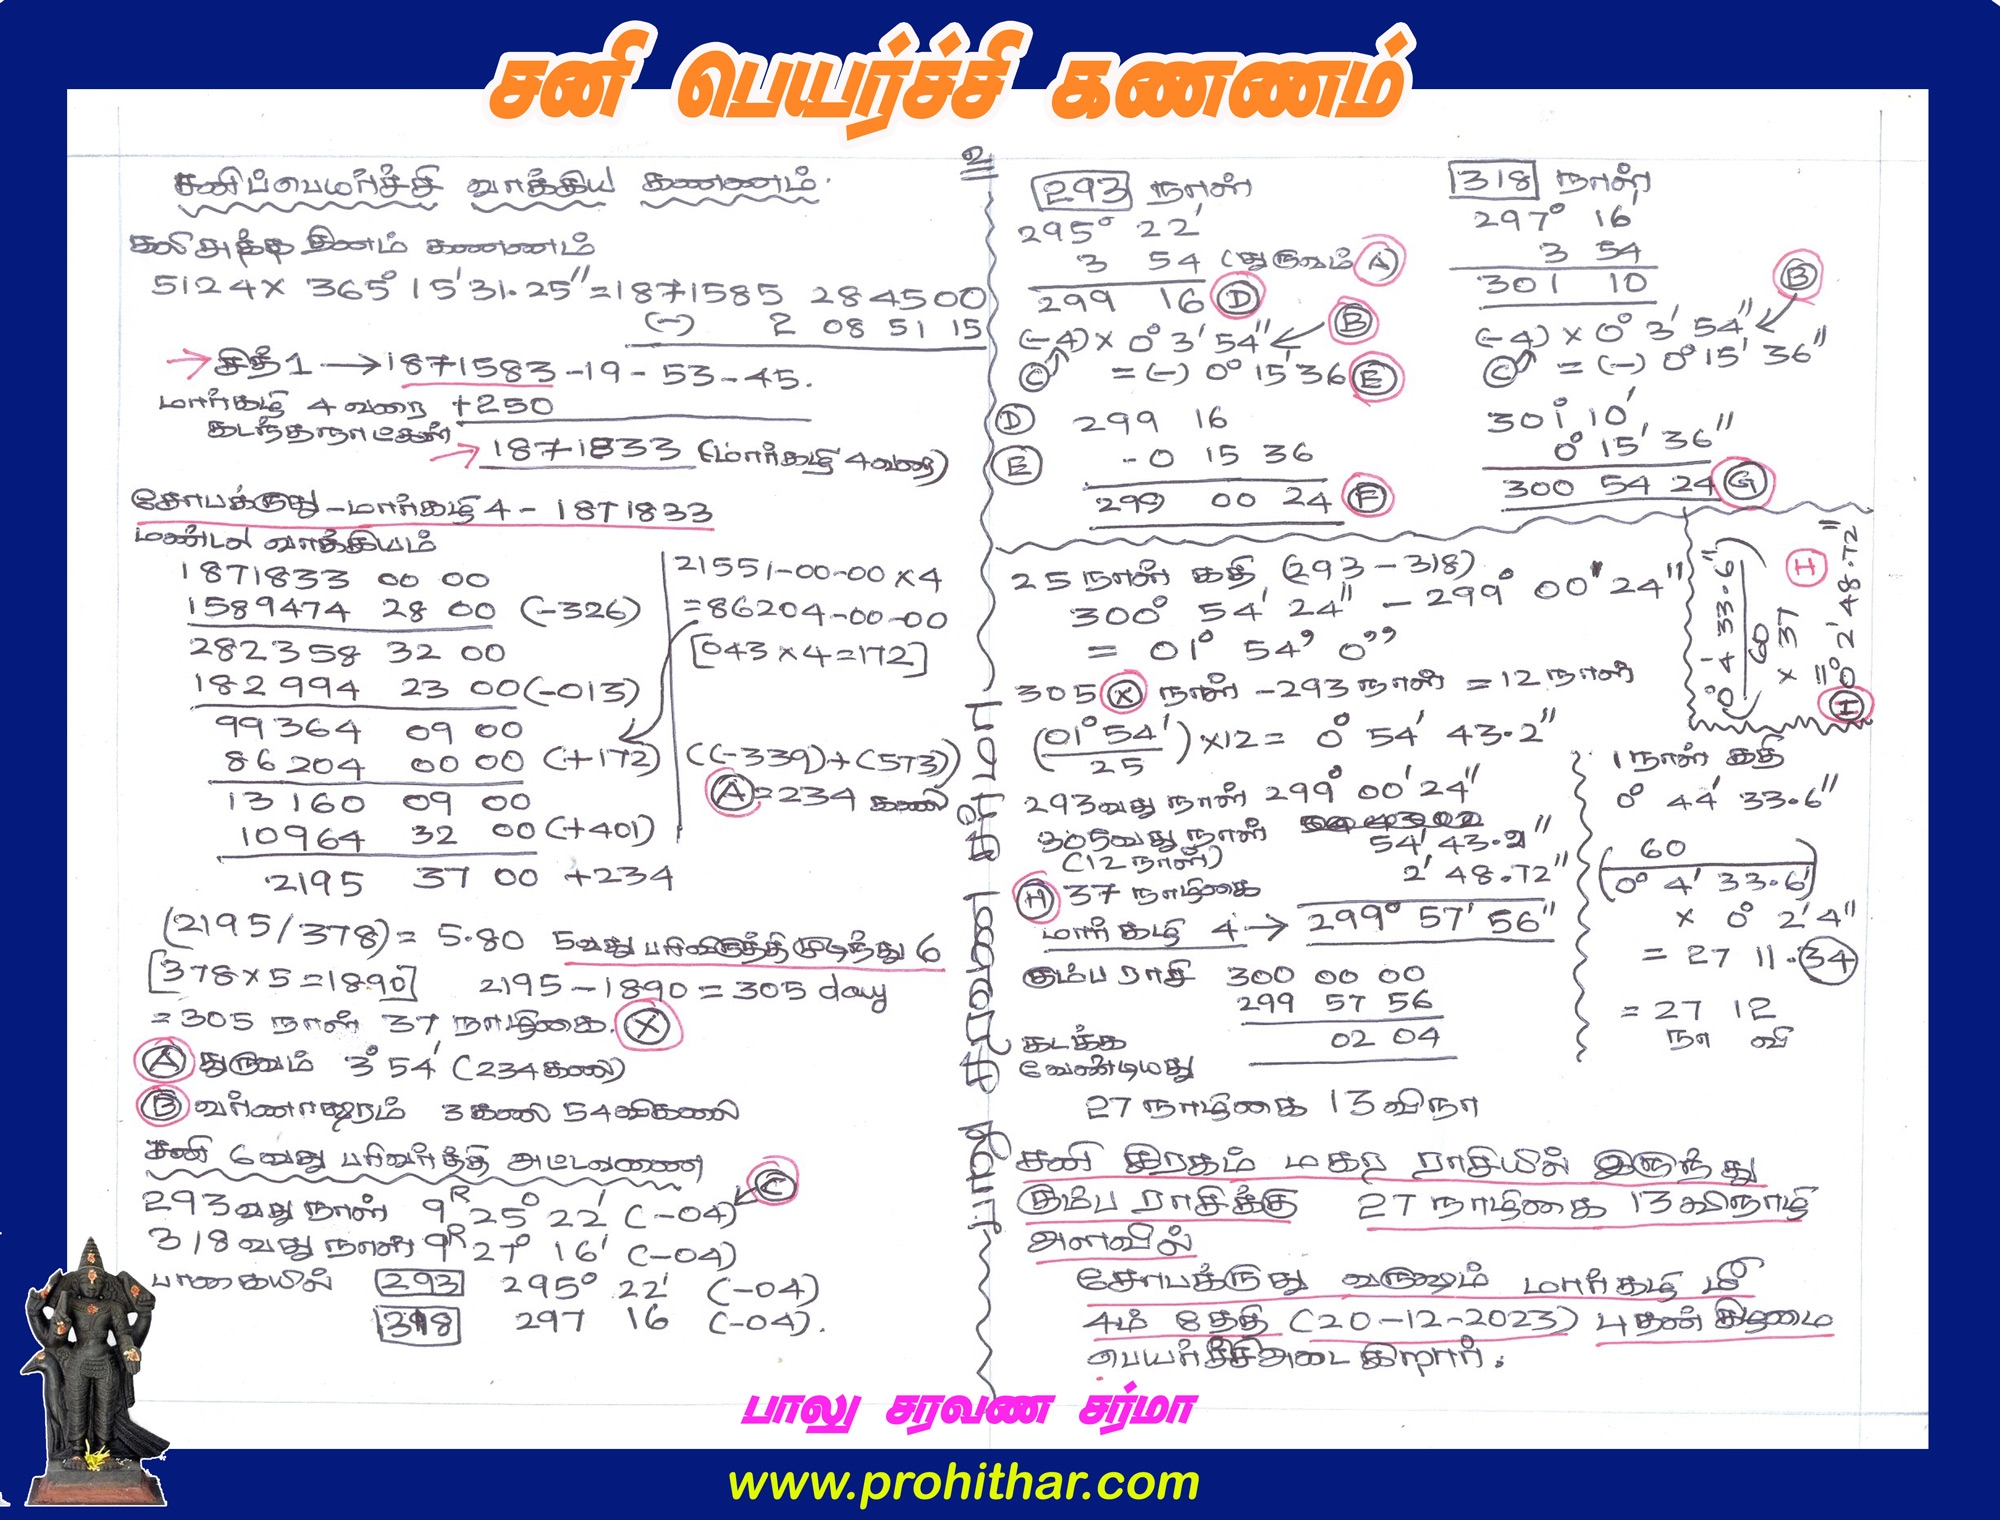 சனி பெயர்ச்சி கணணம்
சனிப்பெயர்ச்சி வாக்கிய கணணம்.
கலி அகத்த தினம் கணணம்
5124 x 365° 15' 31.25" = 1871585 28 45 00
(-) 2 08 51 15
சித் 1 → 1871583-19-53-45.
மார்கழி 4 வரை +250
கடந்தநாட்கள்
1871833 (மார்கழி 4வரை)
சோபக்ருது - மார்கழி 4 - 1871833
மண்டல வாக்கியம்
1871833 00 00
1589474 28 00 (-326)
282358 32 00
182994 23 00 (-013)
99364 09 00
86204 00 00 (+172)
13160 09 00
10964 32 00 (+401)
2195 37 00 +234
21551-00-00 x 4
= 86204-00-00
[043 x 4 = 172]
((-339) + (573))
A = 234 கலை
(2195/378) = 5.80 5வது பரிவிருத்தி முடிந்து 6
[378 x 5 = 1890] 2195 - 1890 = 305 day
= 305 நாள் 37 நாழிகை. X
A துருவம் 3° 54' (234 கலை)
B வர்ணாக்ஷரம் 3 கலை 54 விகலை
சனி 6வது பரிவர்த்தி அட்டவணை
293வது நாள் 9R 25° 22' (-04) C
318வது நாள் 9R 27° 16' (-04)
பாகையில் 293 295° 22' (-04)
318 297 16 (-04).
உ
293 நாள்
295° 22'
3 54 (துருவம் A)
299 16 D
(-4) x 0° 3' 54" B
C = (-) 0° 15' 36 E
D 299 16
E -0 15 36
299 00 24 F
318 நாள்
297° 16'
3 54
301 10 B
(-4) x 0° 3' 54"
C = (-) 0° 15' 36"
301° 10'
0° 15' 36"
300 54 24 G
25 நாள் கதி (293 - 318)
300° 54' 24" - 299° 00' 24"
= 01° 54' 0"
305 X நாள் - 293 நாள் = 12 நாள்
(01° 54' / 25) x 12 = 0° 54' 43.2"
293வது நாள் 299° 00' 24"
305வது நாள் 54' 43.2"
(12 நாள்)
H 37 நாழிகை 2' 48.72"
மார்கழி 4 → 299° 57' 56"
கும்ப ராசி 300 00 00
299 57 56
கடக்க 02 04
வேண்டியது
27 நாழிகை 13 விநா
(0° 4' 33.6" / 60) x 37
= 0° 2' 48.72"
H
H
1 நாள் கதி
0° 44' 33.6"
(60 / 0° 4' 33.6')
x 0° 2' 4"
= 27 11.34
= 27 12
நா வி
சனி கிரகம் மகர ராசியில் இருந்து
கும்ப ராசிக்கு 27 நாழிகை 13 விநாழி
அளவில்
சோபக்ருது வருஷம் மார்கழி மீ
4ம் தேதி (20-12-2023) புதன் கிழமை
பெயர்ச்சி அடைகிறார்.
பாலு சரவண சர்மா
www.prohithar.com